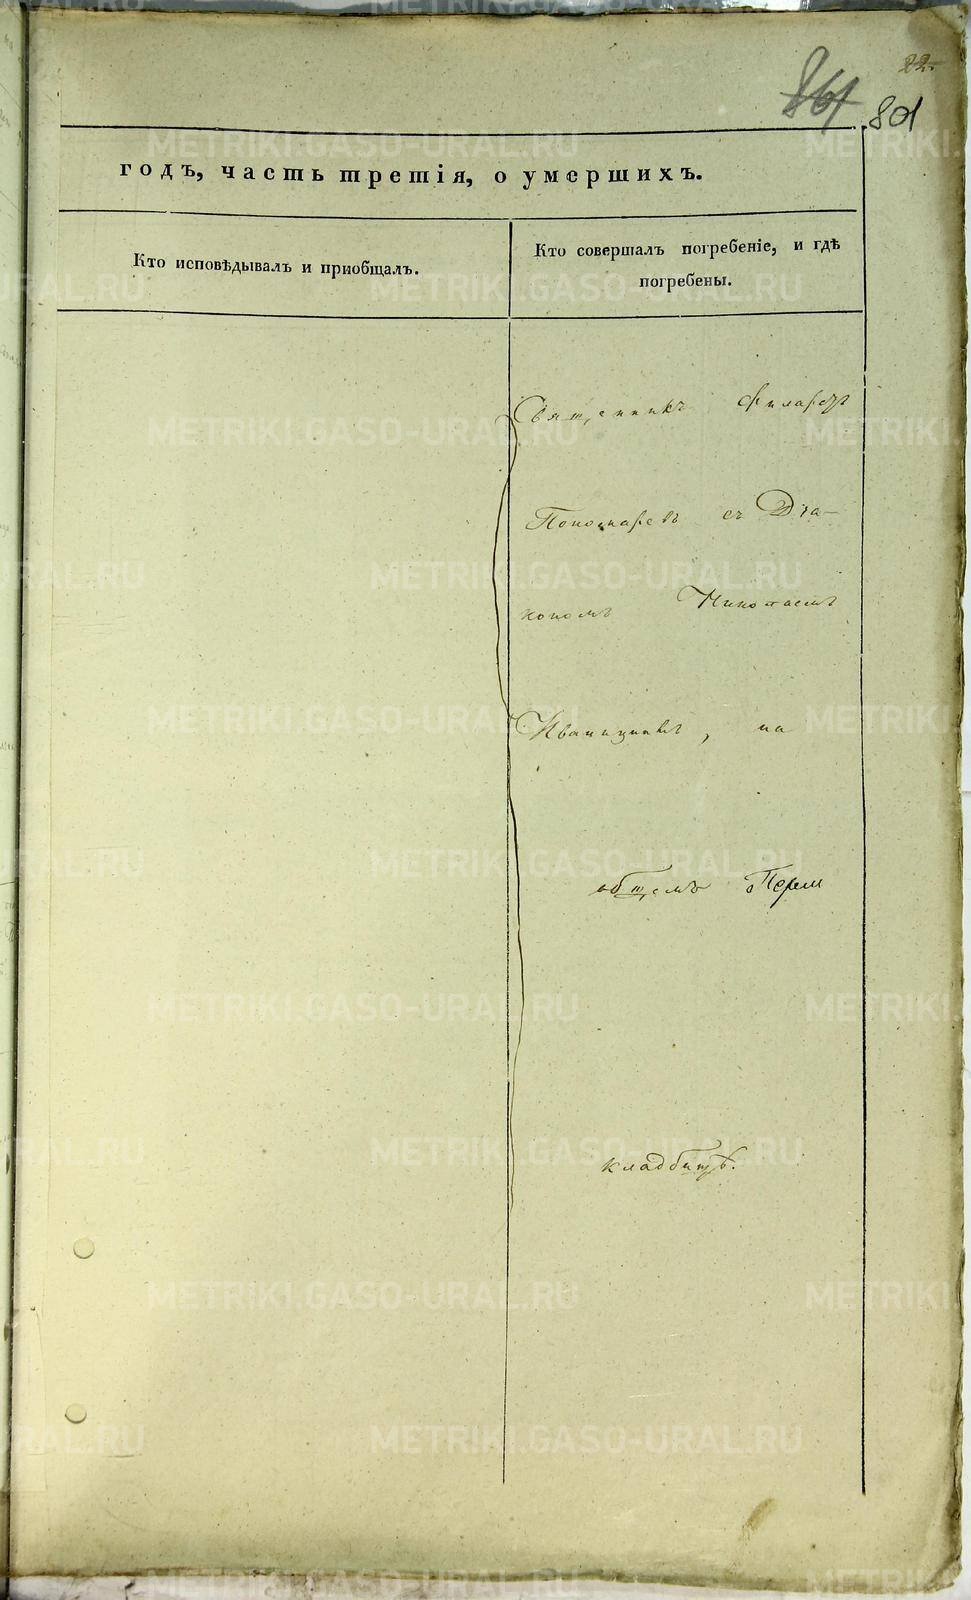 22.
861
801
годъ, часть третія, о умершихъ.
Кто исповѣдывалъ и пріобщалъ.
Кто совершалъ погребеніе, и гдѣ
погребены.
Священникъ Филаретъ
Пономаревъ съ Діа-
кономъ Николаемъ
на
общемъ
кладбищѣ.
METRIKI.GASO-URAL.RU